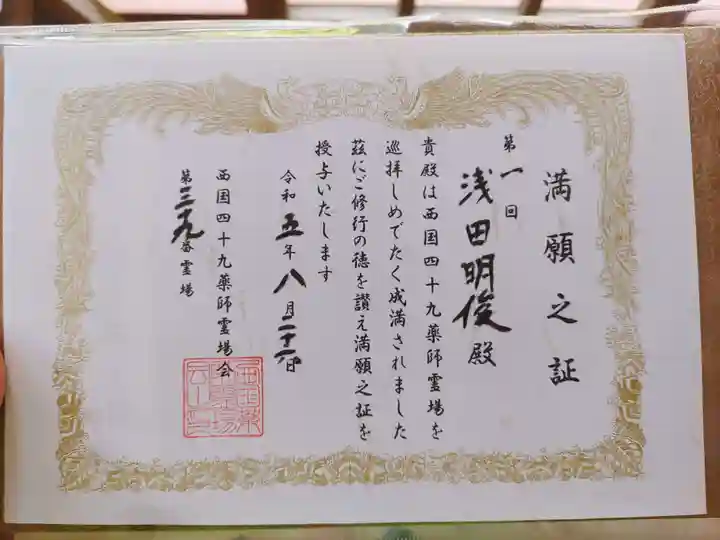 満願之証
第一回
浅田明俊殿
貴殿は西国四十九薬師霊場を
巡拝しめでたく成満されました
茲にご修行の徳を讃え満願之証を
授与いたします
令和五年八月二十六日
西国四十九薬師霊場会
第三十九番霊場